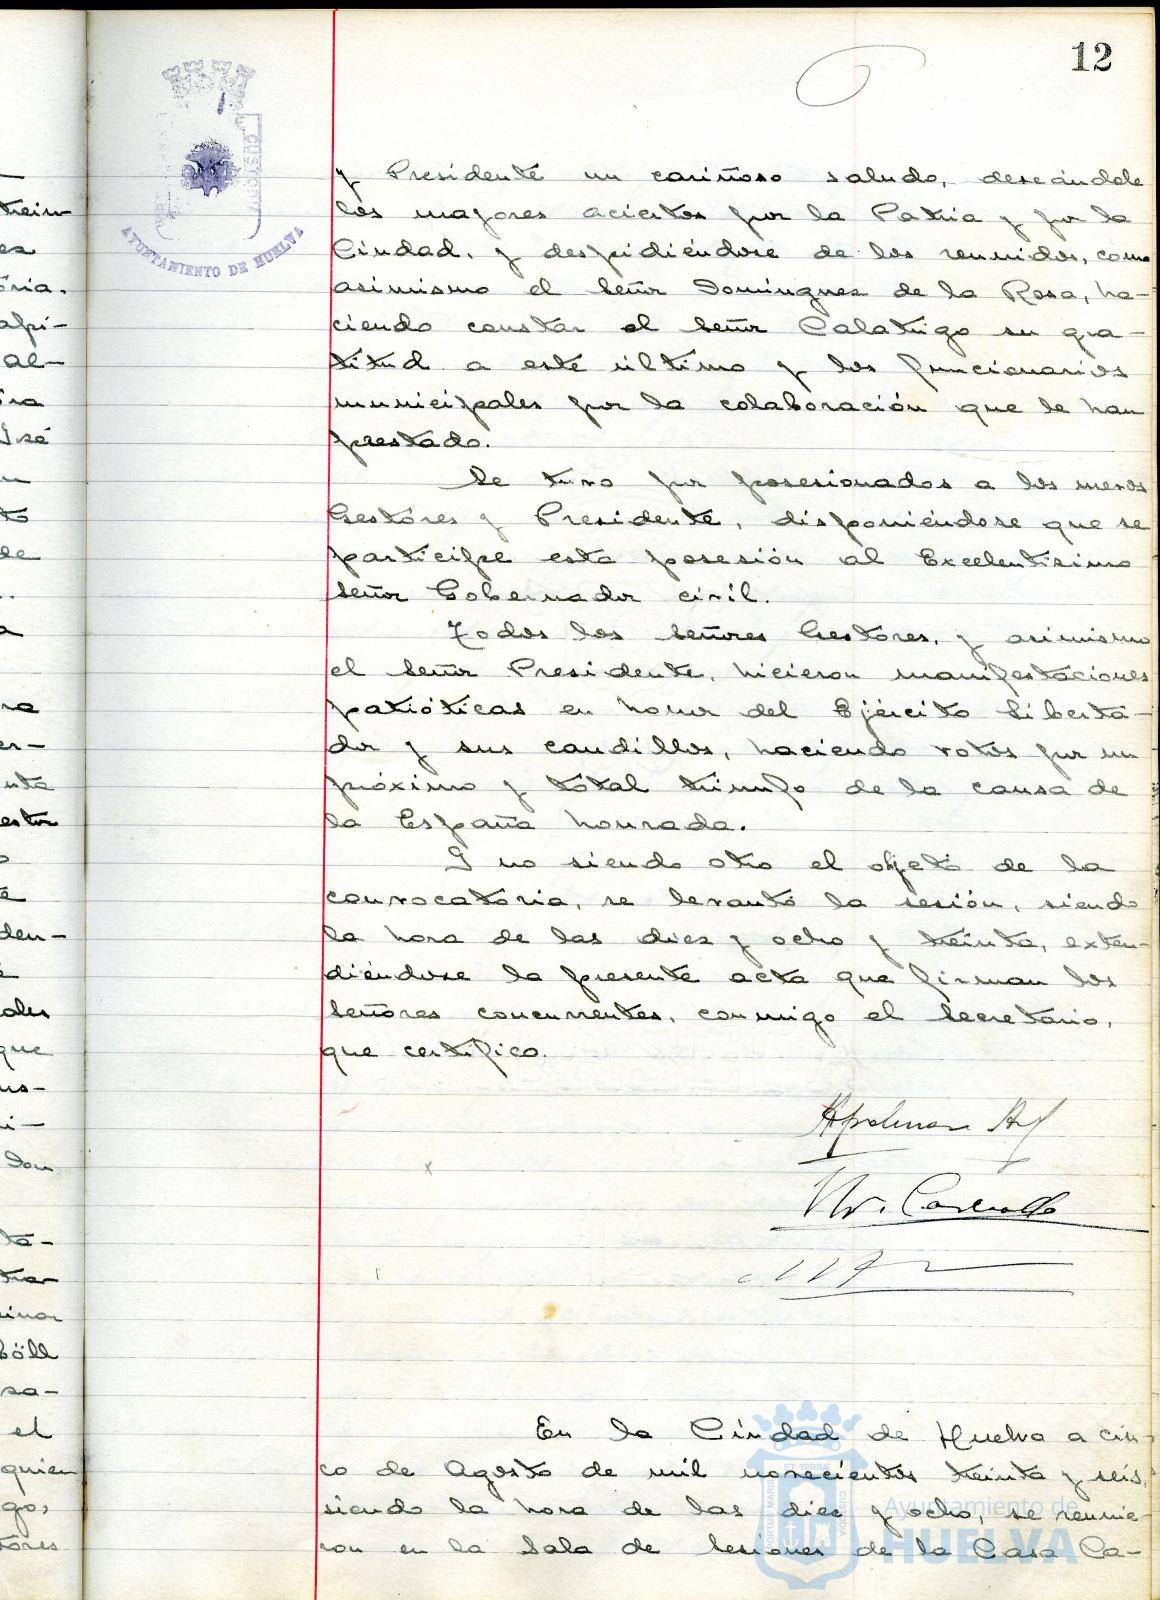 12
AYUNTAMIENTO DE HUELVA
y Presidente un cariñoso saludo, deseándole
los mayores aciertos por la Patria y por la
Ciudad, y despidiéndose de los reunidos, como
asimismo el Señor Domínguez de la Rosa, ha-
ciendo constar el Señor Calatrigo su gra-
titud a este último y los funcionarios
municipales por la colaboración que le han
prestado.
Se tuvo por posesionados a los nuevos
Gestores y Presidente, disponiéndose que se
participe esta posesión al Excelentísimo
Señor Gobernador civil.
Todos los señores Gestores, y asimismo
el Señor Presidente, hicieron manifestaciones
patrióticas en honor del Ejército Liberta-
dor y sus caudillos, haciendo votos por un
próximo y total triunfo de la causa de
la España honrada.
Y no siendo otro el objeto de la
convocatoria, se levantó la sesión, siendo
la hora de las diez y ocho y treinta, exten-
diéndose la presente acta que firman los
Señores concurrentes, conmigo el Secretario,
que certifico.
En la Ciudad de Huelva a cin-
co de Agosto de mil novecientos treinta y seis,
siendo la hora de las diez y ocho, se reunie-
ron en la Sala de Sesiones de la Casa Ca-
Ayuntamiento de
HUELVA